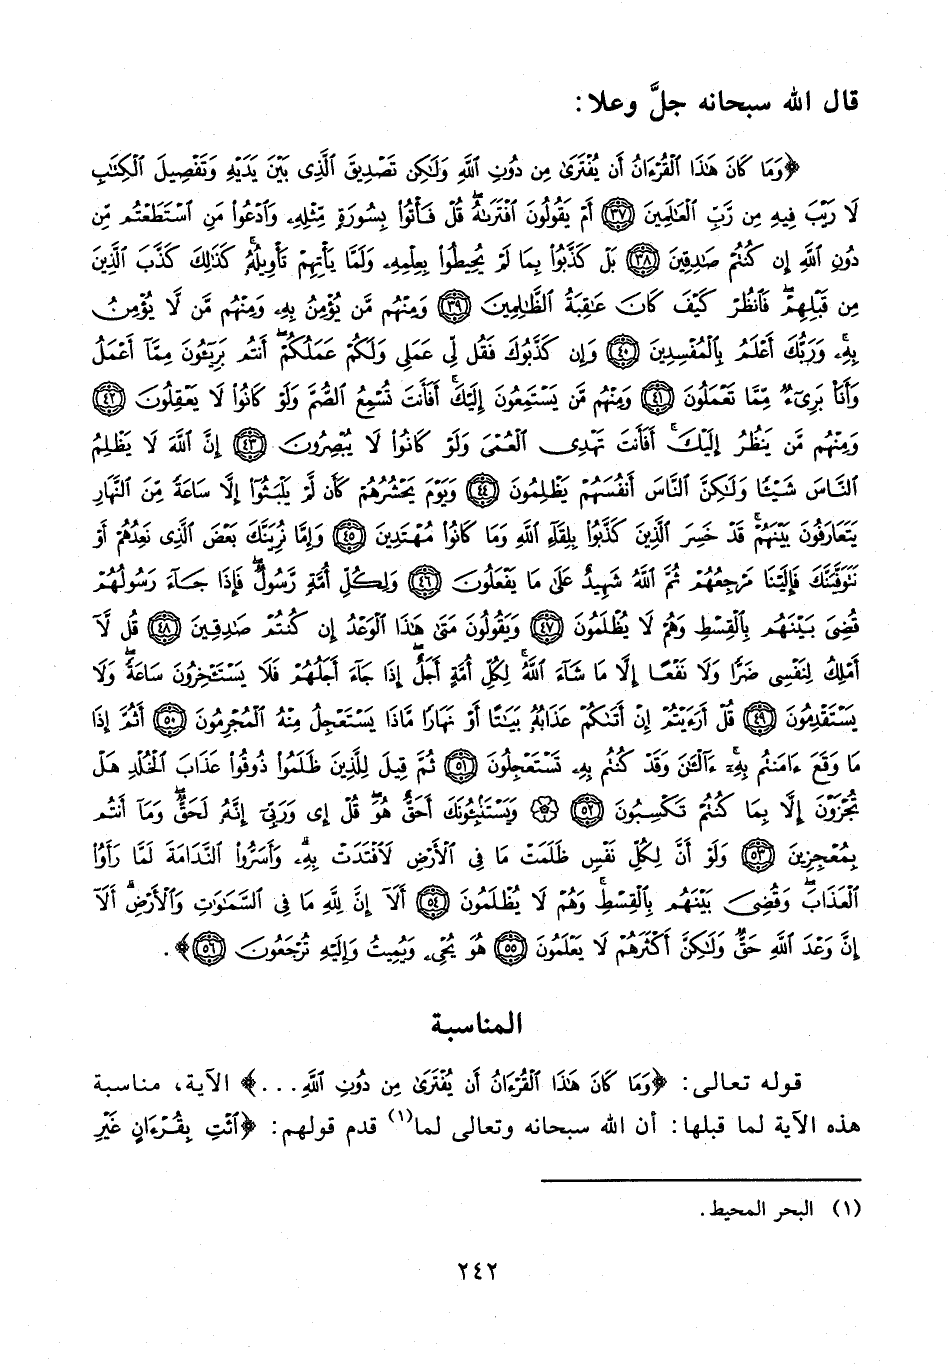 قال الله سبحانه جلَّ وعلا:
﴿وَمَا كَانَ هَٰذَا الْقُرْءَانُ أَن يُفْتَرَىٰ مِن دُونِ اللَّهِ وَلَٰكِن تَصْدِيقَ الَّذِى بَيْنَ يَدَيْهِ وَتَفْصِيلَ الْكِتَٰبِ
لَا رَيْبَ فِيهِ مِن رَّبِّ الْعَٰلَمِينَ ﴿٣٧﴾ أَمْ يَقُولُونَ افْتَرَىٰهُ ۖ قُلْ فَأْتُوا۟ بِسُورَةٍ مِّثْلِهِۦ وَادْعُوا۟ مَنِ اسْتَطَعْتُم مِّن
دُونِ اللَّهِ إِن كُنتُمْ صَٰدِقِينَ ﴿٣٨﴾ بَلْ كَذَّبُوا۟ بِمَا لَمْ يُحِيطُوا۟ بِعِلْمِهِۦ وَلَمَّا يَأْتِهِمْ تَأْوِيلُهُۥ ۚ كَذَٰلِكَ كَذَّبَ الَّذِينَ
مِن قَبْلِهِمْ ۖ فَانظُرْ كَيْفَ كَانَ عَٰقِبَةُ الظَّٰلِمِينَ ﴿٣٩﴾ وَمِنْهُم مَّن يُؤْمِنُ بِهِۦ وَمِنْهُم مَّن لَّا يُؤْمِنُ
بِهِۦ ۚ وَرَبُّكَ أَعْلَمُ بِالْمُفْسِدِينَ ﴿٤٠﴾ وَإِن كَذَّبُوكَ فَقُل لِّى عَمَلِى وَلَكُمْ عَمَلُكُمْ ۖ أَنتُم بَرِيٓـُٔونَ مِمَّآ أَعْمَلُ
وَأَنَا۠ بَرِىٓءٌ مِّمَّا تَعْمَلُونَ ﴿٤١﴾ وَمِنْهُم مَّن يَسْتَمِعُونَ إِلَيْكَ ۚ أَفَأَنتَ تُسْمِعُ الصُّمَّ وَلَوْ كَانُوا۟ لَا يَعْقِلُونَ ﴿٤٢﴾
وَمِنْهُم مَّن يَنظُرُ إِلَيْكَ ۚ أَفَأَنتَ تَهْدِى الْعُمْىَ وَلَوْ كَانُوا۟ لَا يُبْصِرُونَ ﴿٤٣﴾ إِنَّ اللَّهَ لَا يَظْلِمُ
النَّاسَ شَيْـًٔا وَلَٰكِنَّ النَّاسَ أَنفُسَهُمْ يَظْلِمُونَ ﴿٤٤﴾ وَيَوْمَ يَحْشُرُهُمْ كَأَن لَّمْ يَلْبَثُوٓا۟ إِلَّا سَاعَةً مِّنَ النَّهَارِ
يَتَعَارَفُونَ بَيْنَهُمْ ۚ قَدْ خَسِرَ الَّذِينَ كَذَّبُوا۟ بِلِقَآءِ اللَّهِ وَمَا كَانُوا۟ مُهْتَدِينَ ﴿٤٥﴾ وَإِمَّا نُرِيَنَّكَ بَعْضَ الَّذِى نَعِدُهُمْ أَوْ
نَتَوَفَّيَنَّكَ فَإِلَيْنَا مَرْجِعُهُمْ ثُمَّ اللَّهُ شَهِيدٌ عَلَىٰ مَا يَفْعَلُونَ ﴿٤٦﴾ وَلِكُلِّ أُمَّةٍ رَّسُولٌ ۖ فَإِذَا جَآءَ رَسُولُهُمْ
قُضِىَ بَيْنَهُم بِالْقِسْطِ وَهُمْ لَا يُظْلَمُونَ ﴿٤٧﴾ وَيَقُولُونَ مَتَىٰ هَٰذَا الْوَعْدُ إِن كُنتُمْ صَٰدِقِينَ ﴿٤٨﴾ قُل لَّآ
أَمْلِكُ لِنَفْسِى ضَرًّا وَلَا نَفْعًا إِلَّا مَا شَآءَ اللَّهُ ۗ لِكُلِّ أُمَّةٍ أَجَلٌ ۚ إِذَا جَآءَ أَجَلُهُمْ فَلَا يَسْتَـْٔخِرُونَ سَاعَةً ۖ وَلَا
يَسْتَقْدِمُونَ ﴿٤٩﴾ قُلْ أَرَءَيْتُمْ إِنْ أَتَىٰكُمْ عَذَابُهُۥ بَيَٰتًا أَوْ نَهَارًا مَّاذَا يَسْتَعْجِلُ مِنْهُ الْمُجْرِمُونَ ﴿٥٠﴾ أَثُمَّ إِذَا
مَا وَقَعَ ءَامَنتُم بِهِۦٓ ۚ ءَآلْـَٰٔنَ وَقَدْ كُنتُم بِهِۦ تَسْتَعْجِلُونَ ﴿٥١﴾ ثُمَّ قِيلَ لِلَّذِينَ ظَلَمُوا۟ ذُوقُوا۟ عَذَابَ الْخُلْدِ هَلْ
تُجْزَوْنَ إِلَّا بِمَا كُنتُمْ تَكْسِبُونَ ﴿٥٢﴾ ۞ وَيَسْتَنۢبِـُٔونَكَ أَحَقٌّ هُوَ ۖ قُلْ إِى وَرَبِّىٓ إِنَّهُۥ لَحَقٌّ ۖ وَمَآ أَنتُم
بِمُعْجِزِينَ ﴿٥٣﴾ وَلَوْ أَنَّ لِكُلِّ نَفْسٍ ظَلَمَتْ مَا فِى الْأَرْضِ لَافْتَدَتْ بِهِۦ ۗ وَأَسَرُّوا۟ النَّدَامَةَ لَمَّا رَأَوُا۟
الْعَذَابَ ۖ وَقُضِىَ بَيْنَهُم بِالْقِسْطِ ۚ وَهُمْ لَا يُظْلَمُونَ ﴿٥٤﴾ أَلَآ إِنَّ لِلَّهِ مَا فِى السَّمَٰوَٰتِ وَالْأَرْضِ ۗ أَلَآ
إِنَّ وَعْدَ اللَّهِ حَقٌّ وَلَٰكِنَّ أَكْثَرَهُمْ لَا يَعْلَمُونَ ﴿٥٥﴾ هُوَ يُحْىِۦ وَيُمِيتُ وَإِلَيْهِ تُرْجَعُونَ ﴿٥٦﴾﴾.
المناسبة
قوله تعالى: ﴿وَمَا كَانَ هَٰذَا الْقُرْءَانُ أَن يُفْتَرَىٰ مِن دُونِ اللَّهِ...﴾ الآية، مناسبة
هذه الآية لما قبلها: أن الله سبحانه وتعالى لما(١) قدم قولهم: ﴿ائْتِ بِقُرْءَانٍ غَيْرِ
(١) البحر المحيط.
٢٤٢